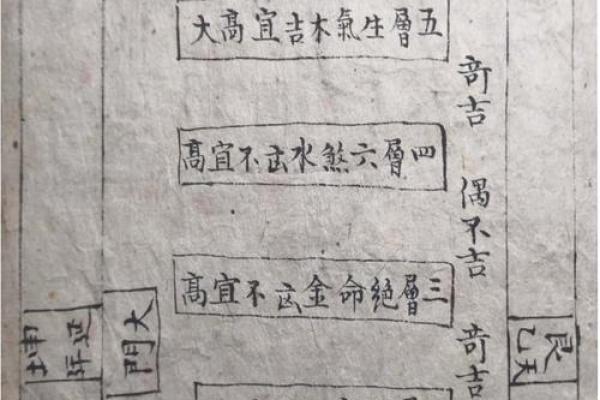 五層生氣木吉宜髙大
奇吉
四層六煞水凶不宜髙
偶不吉
三層絕命金凶不宜髙
奇吉
艮
天乙
大門
坤
延年